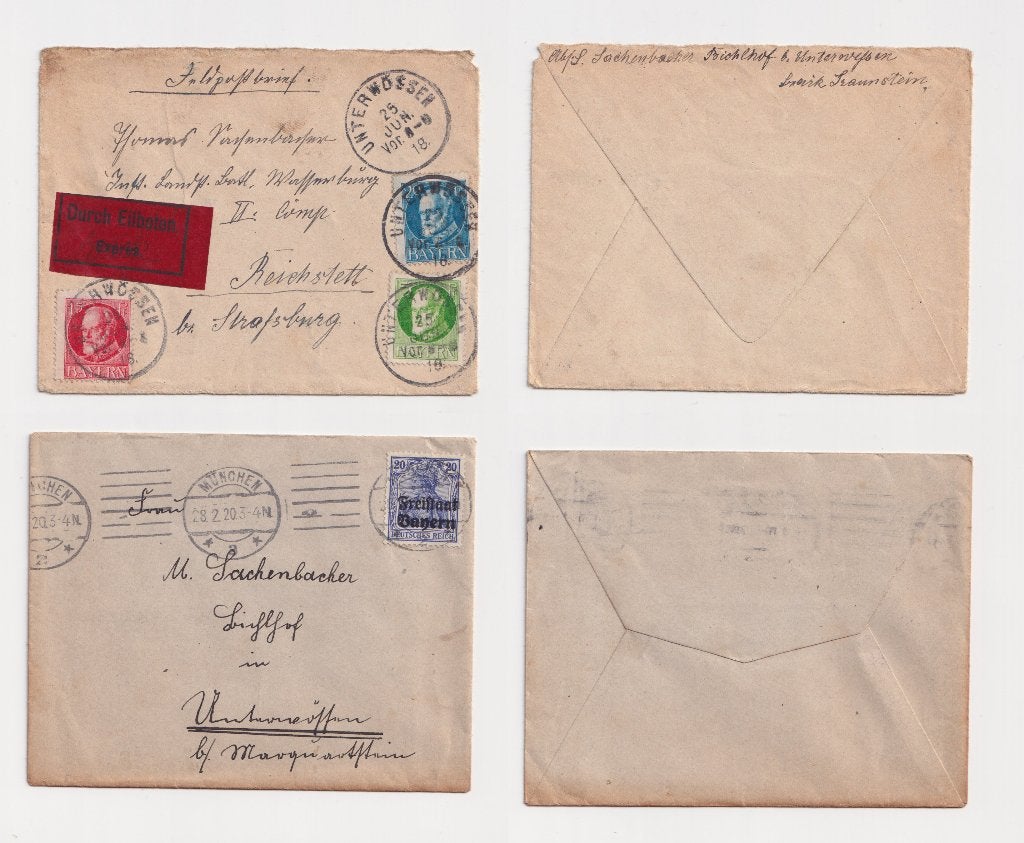 Feldpostbrief.
UNTERWÖSSEN
25
JUN.
Vor. 8-9
18.
Thomas Sachenbacher
Inft. Landst. Batl. Wasserburg
II. Comp.
Reichstett
b. Straßburg.
Durch Eilboten
Exprès
UNTERWÖSSEN
BAYERN
UNTERWÖSSEN
25
Vor.
18.
BAYERN
18.
BAYERN
Abs. S. Sachenbacher Bichlhof b. Unterwessen
Bezirk Traunstein.
MÜNCHEN
20.3-4N.
2
MÜNCHEN
28.2.20.3-4N.
2
20 20
Freistaat
Bayern
DEUTSCHES REICH
Frau
M. Sachenbacher
Bichlhof
in
Unterwössen
b/ Marquartstein